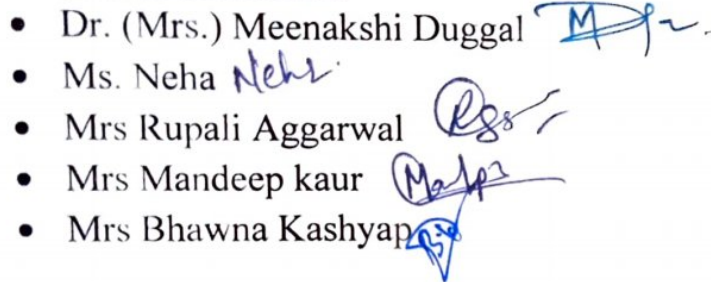 • Dr. (Mrs.) Meenakshi Duggal
• Ms. Neha Neha
• Mrs Rupali Aggarwal
• Mrs Mandeep kaur
• Mrs Bhawna Kashyap